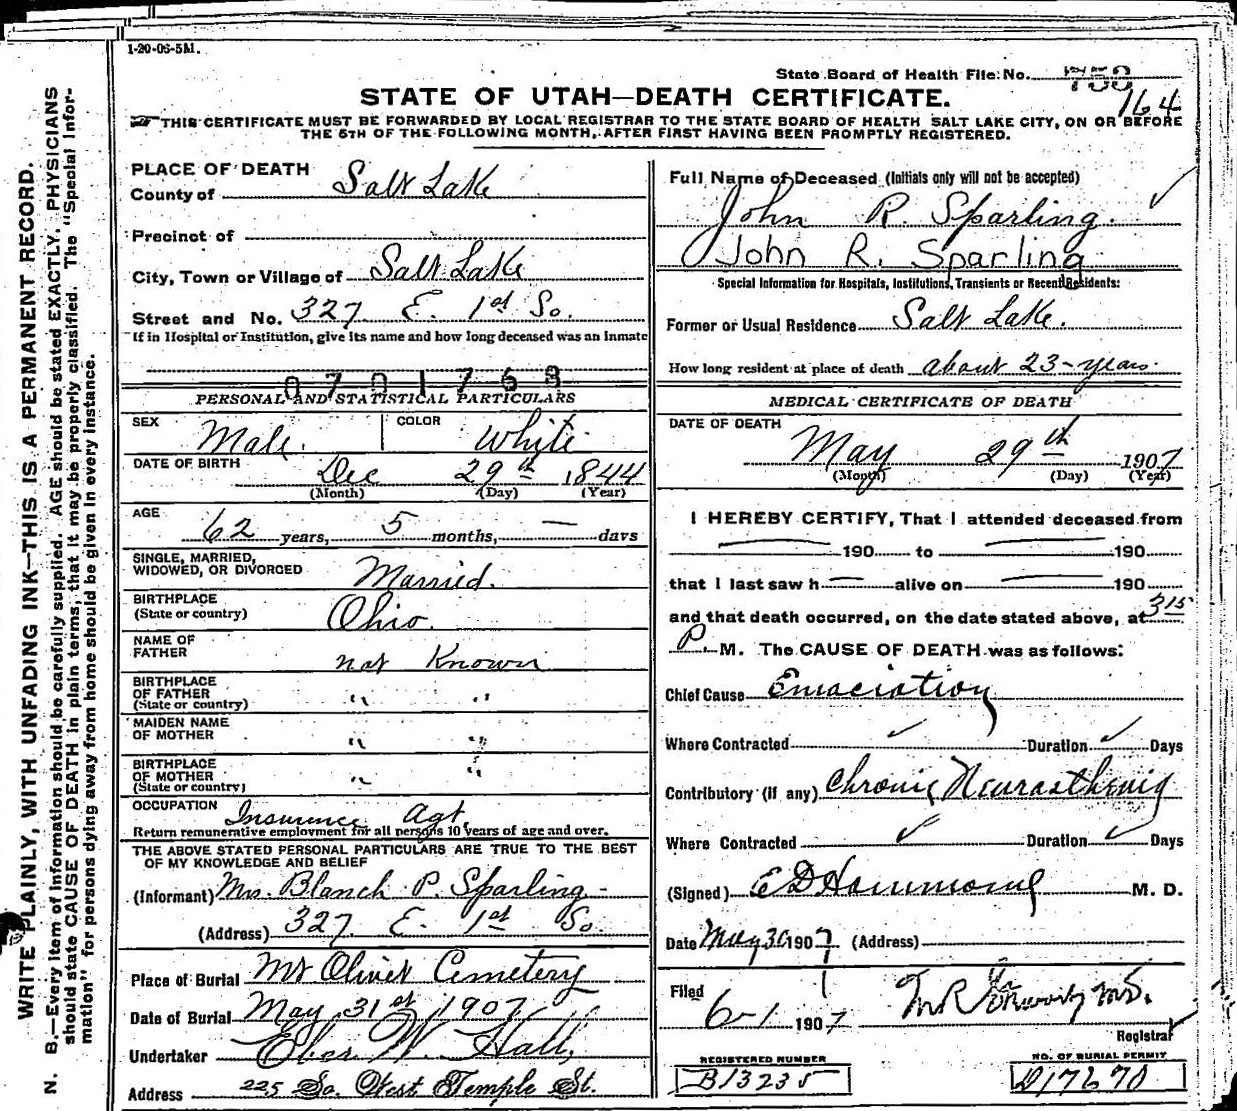 1-20-06-5M.
State Board of Health File No. 758
164
STATE OF UTAH—DEATH CERTIFICATE.
THIS CERTIFICATE MUST BE FORWARDED BY LOCAL REGISTRAR TO THE STATE BOARD OF HEALTH SALT LAKE CITY, ON OR BEFORE
THE 5TH OF THE FOLLOWING MONTH, AFTER FIRST HAVING BEEN PROMPTLY REGISTERED.
WRITE PLAINLY, WITH UNFADING INK—THIS IS A PERMANENT RECORD.
N. B.—Every item of information should be carefully supplied. AGE should be stated EXACTLY. PHYSICIANS
should state CAUSE OF DEATH in plain terms, that it may be properly classified. The "Special Infor-
mation" for persons dying away from home should be given in every instance.
PLACE OF DEATH
County of Salt Lake
Precinct of
City, Town or Village of Salt Lake
Street and No. 327 E. 1st So.
If in Hospital or Institution, give its name and how long deceased was an Inmate
0701763
PERSONAL AND STATISTICAL PARTICULARS
SEX Male. COLOR White
DATE OF BIRTH Dec 29th 1844
(Month) (Day) (Year)
AGE
62 years, 5 months, — days
SINGLE, MARRIED,
WIDOWED, OR DIVORCED Married.
BIRTHPLACE
(State or country) Ohio.
NAME OF
FATHER not Known
BIRTHPLACE
OF FATHER
(State or country) " "
MAIDEN NAME
OF MOTHER " "
BIRTHPLACE
OF MOTHER
(State or country) " "
OCCUPATION Insurance Agt.
Return remunerative employment for all persons 10 years of age and over.
THE ABOVE STATED PERSONAL PARTICULARS ARE TRUE TO THE BEST
OF MY KNOWLEDGE AND BELIEF
(Informant) Mrs. Blanch P. Sparling
(Address) 327 E. 1st So.
Place of Burial Mt Olivet Cemetery
Date of Burial May 31st 1907
Undertaker Eber W. Hall,
Address 225 So. West Temple St.
Full Name of Deceased (Initials only will not be accepted)
John R. Sparling.
John R. Sparling
Special Information for Hospitals, Institutions, Transients or Recent Residents:
Former or Usual Residence Salt Lake.
How long resident at place of death about 23 years.
MEDICAL CERTIFICATE OF DEATH
DATE OF DEATH
May 29th 1907
(Month) (Day) (Year)
I HEREBY CERTIFY, That I attended deceased from
190 to 190
that I last saw h— alive on 190
and that death occurred, on the date stated above, at 3 15
P. M. The CAUSE OF DEATH was as follows:
Chief Cause Emaciation
Where Contracted Duration Days
Contributory (if any) Chronic Neurasthenia
Where Contracted Duration Days
(Signed) E D Hammond M. D.
Date May 30 1907 (Address)
Filed
6-1 1907
Registrar
REGISTERED NUMBER
B13235
NO. OF BURIAL PERMIT
D17670